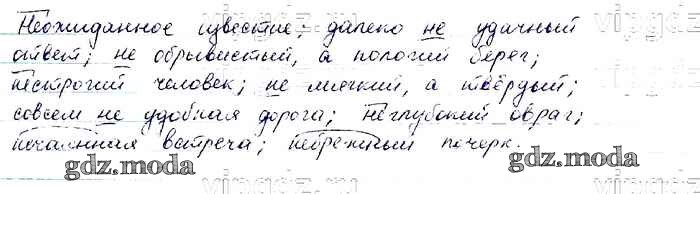 Неожиданное известие; далеко не удачный
ответ; не обрывистый, а пологий берег;
нестрогий человек; не мягкий, а твёрдый;
совсем не удобная дорога; неглубокий овраг;
нечаянная встреча; небрежный почерк.
gdz.moda
gdz.moda